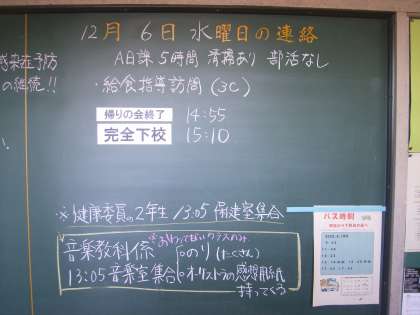 12月 6日 水曜日の連絡
感染症予防
の継続!!
A日課 5時間 清掃あり 部活なし
・給食指導訪問(3C)
帰りの会終了 14:55
完全下校 15:10
※健康委員の2年生 13:05 保健室集合
音楽教科係
13:05 音楽室集合
のり(たくさん)
オーケストラの感想用紙
持ってくる
バス時刻